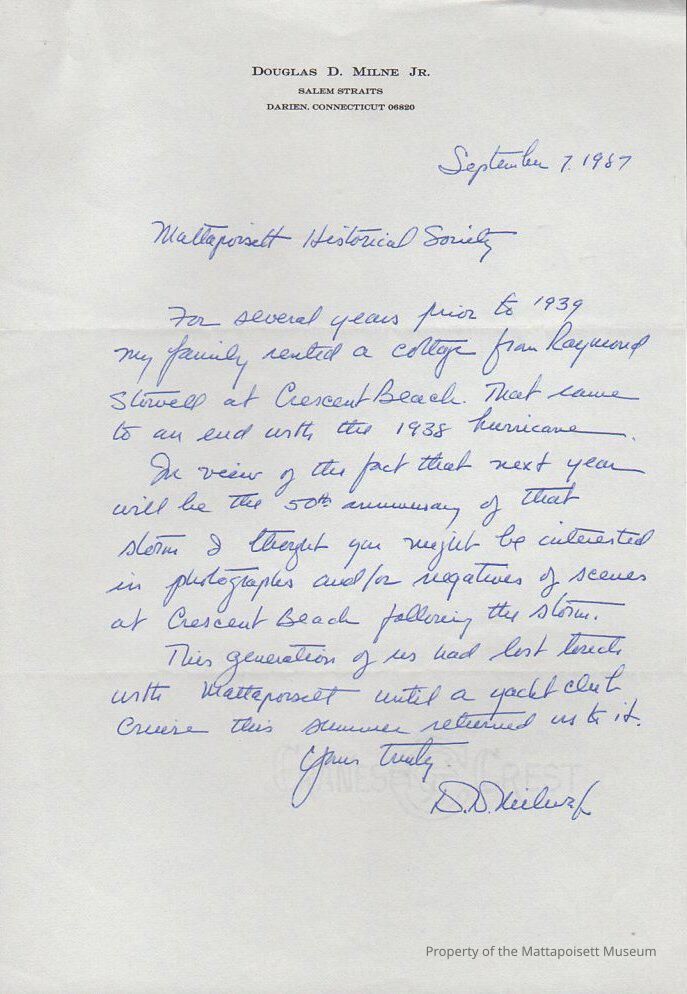 Douglas D. Milne Jr.
SALEM STRAITS
DARIEN, CONNECTICUT 06820
September 7. 1987
Mattapoisett Historical Society
For several years prior to 1939
my family rented a cottage from Raymond
Stowell at Crescent Beach. That came
to an end with the 1938 hurricane.
In view of the fact that next year
will be the 50th anniversary of that
storm I thought you might be interested
in photographs and/or negatives of scenes
at Crescent Beach following the storm.
This generation of us had lost touch
with Mattapoisett until a yacht club
Cruise this summer returned us to it.
Yours truly.
D. D. Milne Jr
Property of the Mattapoisett Museum